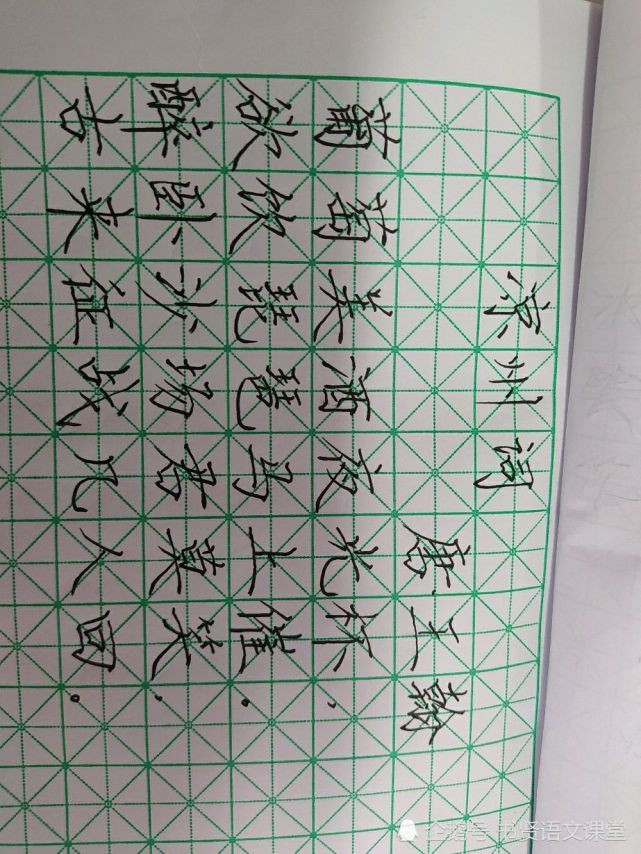 凉州词
唐王翰
葡萄美酒夜光杯，
欲饮琵琶马上催。
醉卧沙场君莫笑，
古来征战几人回。
企鹅号 书贤语文课堂